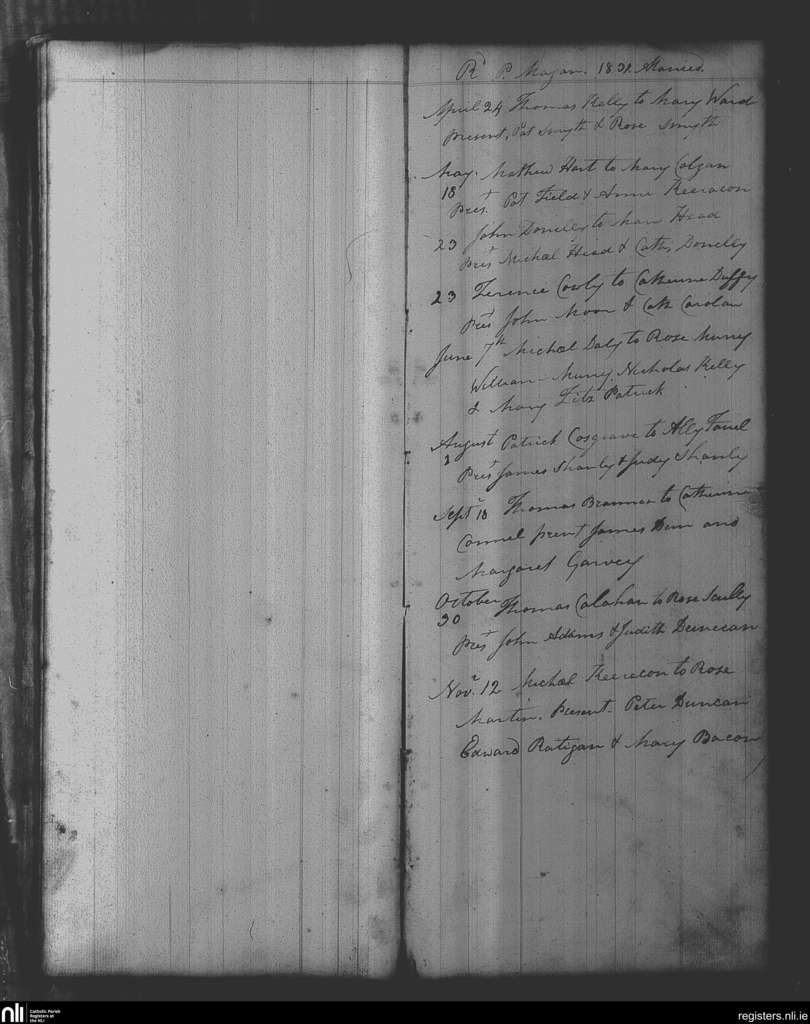 Rd P. Magan. 1831. Married.
April 24 Thomas Kelly to Mary Ward
present, Pat Smyth & Rose Smyth
May. Mathew Hart to Mary Colgan
18 prest. Pat Field & Anne Keeracon
23 John Donelly to Mary Head
prest Michael Head & Cath Donelly
23 Terence Cooly to Catherine Duffy
prest John Moor & Cath Carolan
June 7th Michael Daly to Rose Murry
William Murry, Nicholas Kelly
& Mary Fitz Patrick
August Patrick Cosgrave to Ally Farrel
2 prest James Shanly & Judy Shanly
Septr 18 Thomas Brannan to Catherine
Connel present James Dun and
Margaret Garvey
October Thomas Calahan to Rose Scully
30
prest John Adams & Judith Dunecan
Novr. 12 Michael Keeracon to Rose
Martin. Present. Peter Duncan
Edward Ratigan & Mary Bacon
nli
Catholic Parish
Registers at
the NLI
registers.nli.ie